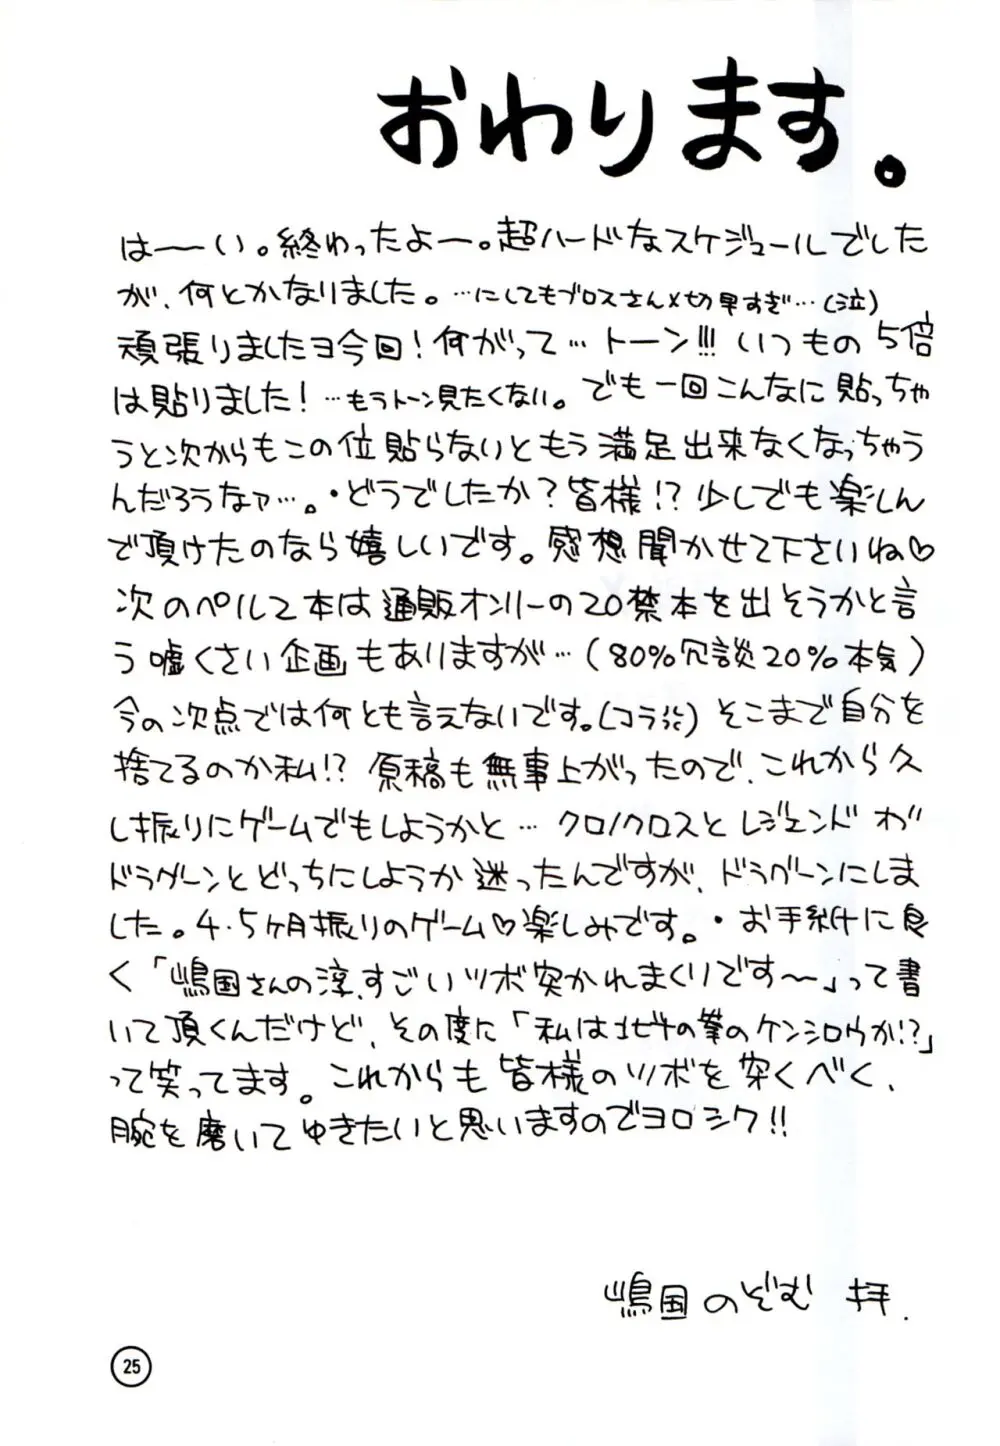 おわります。
は――い。終わったよー。超ハードなスケジュールでした
が、何とかなりました。…にしてもブロスさん〆切早すぎ…(泣)
頑張りましたヨ今回!何がって…トーン!!!いつもの5倍
は貼りました!…もうトーン見たくない。でも一回こんなに貼っちゃ
うと次からもこの位貼らないともう満足出来なくなっちゃう
んだろうなァ…。・どうでしたか?皆様!?少しでも楽しん
で頂けたのなら嬉しいです。感想聞かせて下さいね♡
次のペルソ本は通販オンリーの20禁本を出そうかと言
う嘘くさい企画もありますが…(80%冗談20%本気)
今の次点では何とも言えないです。(コラ)そこまで自分を
捨てるのか私!?原稿も無事上がったので、これから久
し振りにゲームでもしようかと…クロノクロスとレジェンドオブ
ドラグーンとどっちにしようか迷ったんですが、ドラグーンにしま
した。4・5ヶ月振りのゲーム♡楽しみです。・お手紙に良
く「嶋国さんの淳、すごいツボ突かれまくりです〜」って書
いて頂くんだけど、その度に「私は北斗の拳のケンシロウか!?」
って笑ってます。これからも皆様のツボを突くべく、
腕を磨いてゆきたいと思いますのでヨロシク!!
嶋国のぞむ 拝.
25